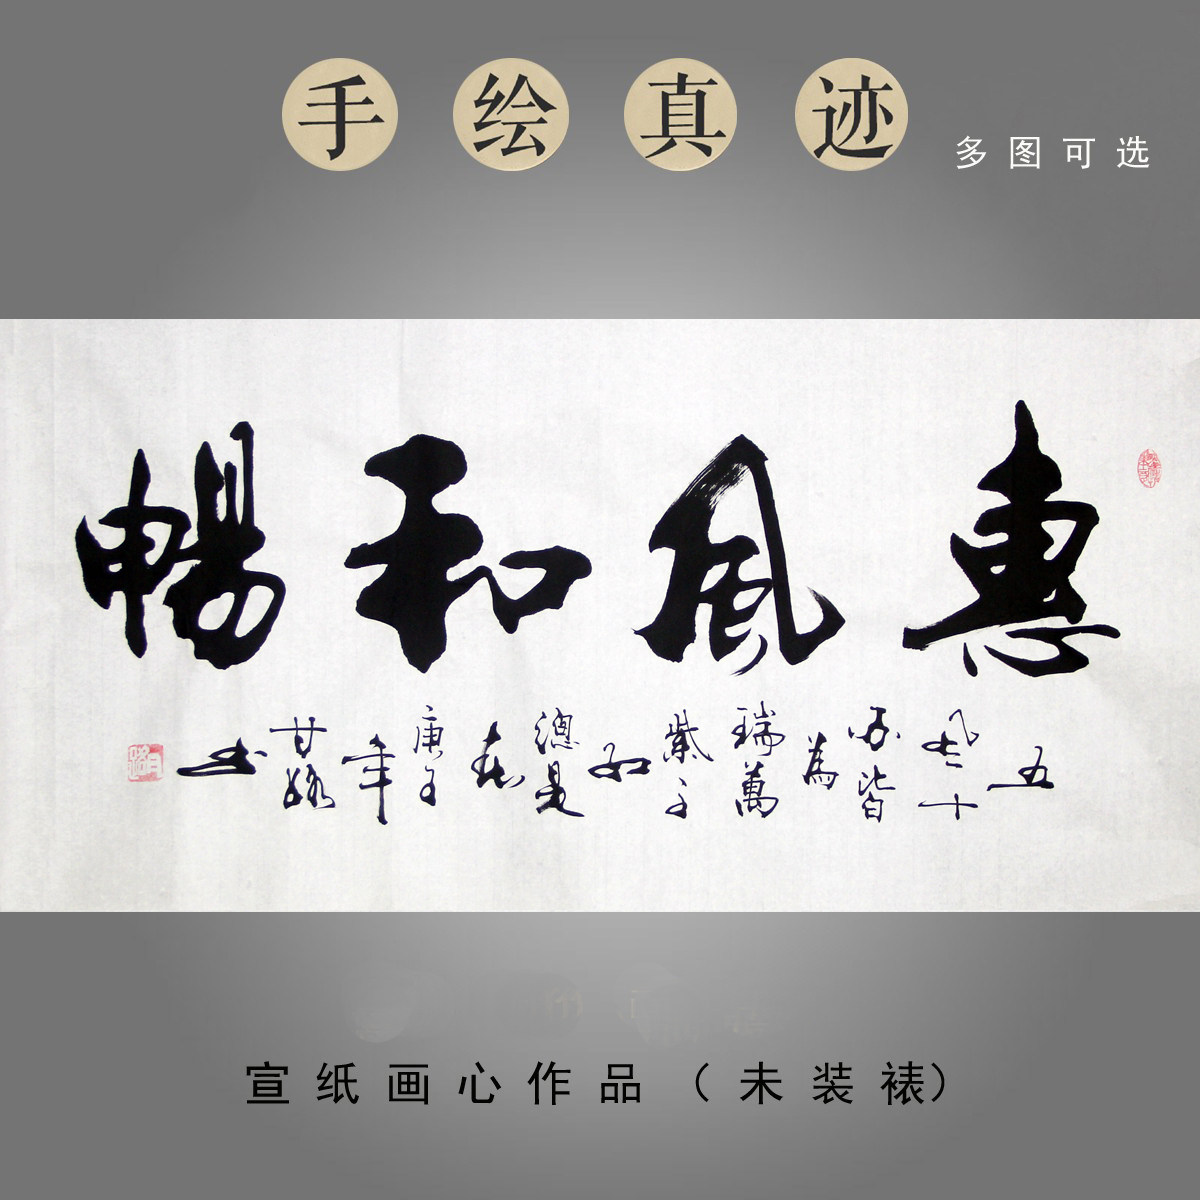 手绘真迹
多图可选
惠風和暢
五風十雨皆為瑞萬紫千紅總是春
庚子年甘露書
宣纸画心作品（未装裱）